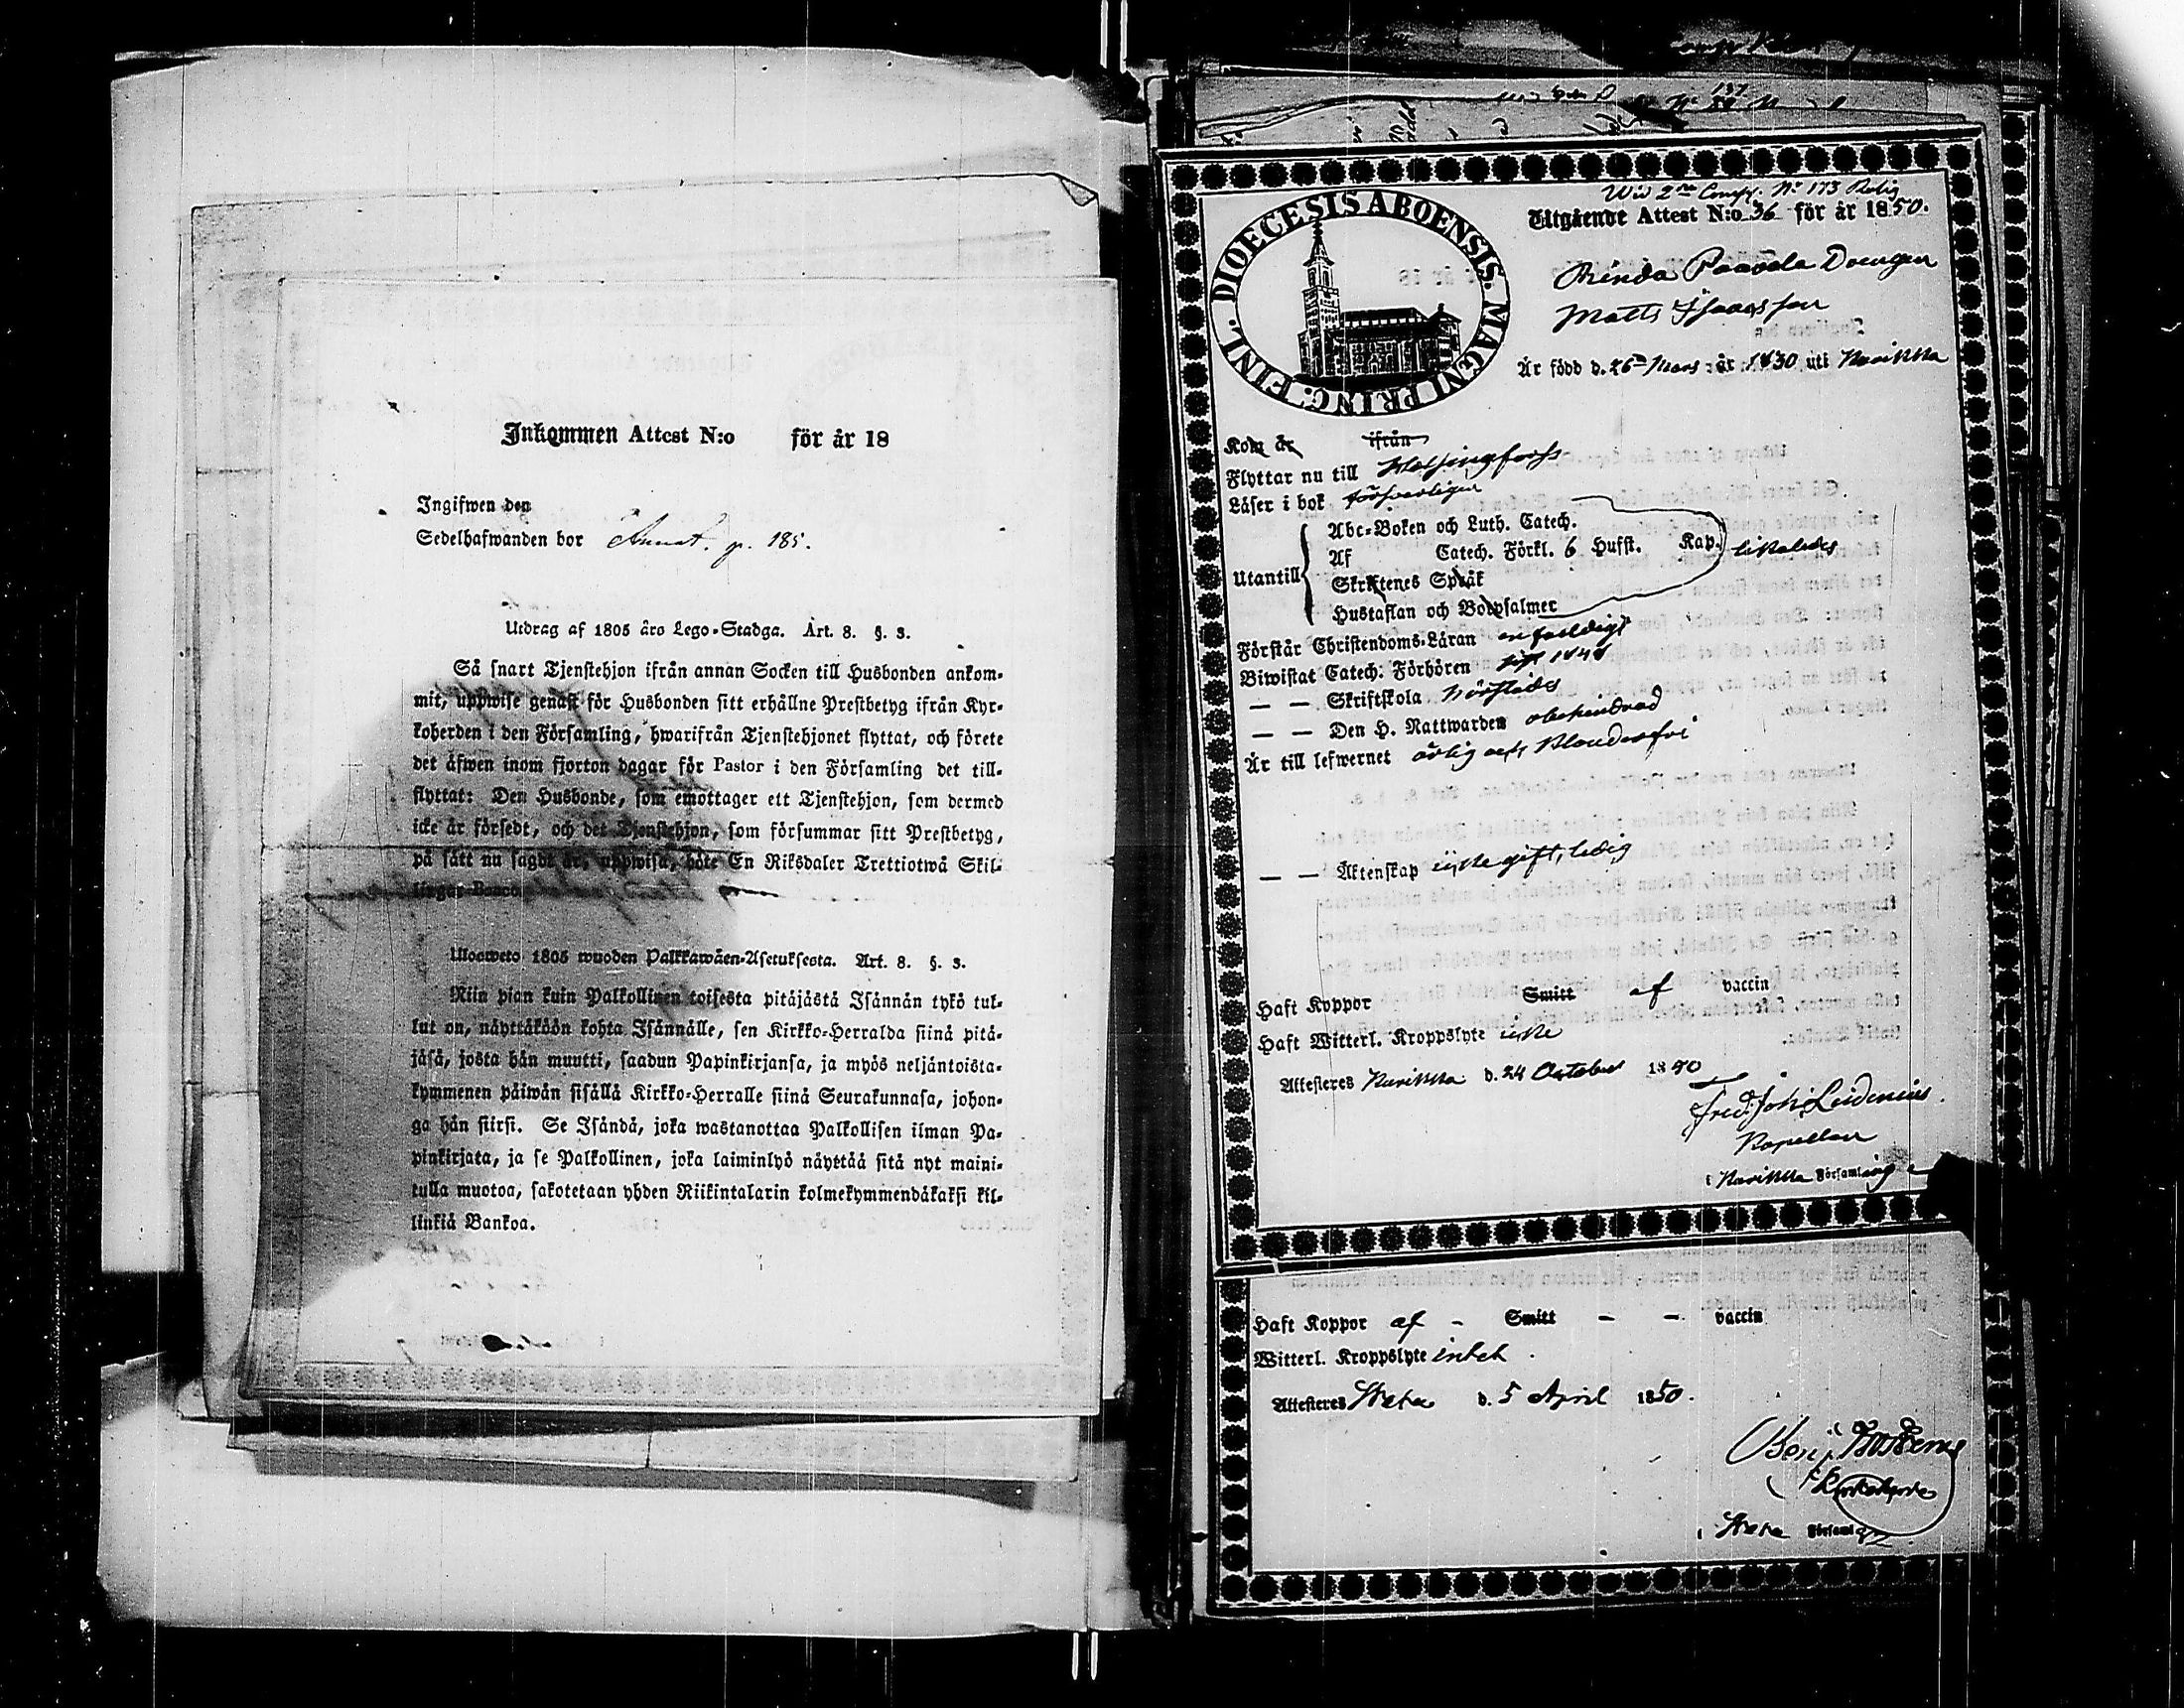 Inkommen Attest N:o för år 18
Ingifwen den
Sedelhafwanden bor Annot. p. 185.
Utdrag af 1805 års Lego-Stadga. Art. 8. §. 3.
Så snart Tjenstehjon ifrån annan Socken till Husbonden ankom-
mit, uppwise genast för Husbonden sitt erhållne Prestbetyg ifrån Kyr-
koherden i den Församling, hwarifrån Tjenstehjonet flyttat, och förete
det äfwen inom fjorton dagar för Pastor i den Församling det till-
flyttat: Den Husbonde, som emottager ett Tjenstehjon, som dermed
icke är försedt, och det Tjenstehjon, som försummar sitt Prestbetyg,
på sätt nu sagdt är, uppwisa, böte En Riksdaler Trettiotwå Skil-
lingar Banco
Ulosweto 1805 wuoden Palkkawäen-Asetuksesta. Art. 8. §. 3.
Niin pian kuin Palkollinen toisesta pitäjästä Isännän tykö tul-
lut on, näyttäköön kohta Isännälle, sen Kirkko-Herralda siinä pitä-
jäsä, josta hän muutti, saadun Papinkirjansa, ja myös neljäntoista-
kymmenen päiwän sisällä Kirkko-Herralle siinä Seurakunnasa, johon-
ga hän siirsi. Se Isändä, joka wastanottaa Palkollisen ilman Pa-
pinkirjata, ja se Palkollinen, joka laiminlyö näyttää sitä nyt maini-
tulla muotoa, sakotetaan yhden Riikintalarin kolmekymmendäkaksi kil-
linkiä Bankoa.
DIOECESIS ABOENSIS. MAGNI PRINC. FINL.
Wid 2ra Comp. No 173 Rolig
Utgående Attest N:o 36 för år 1850.
Paavola Drengen
Matts Isaacsson
Är född d. 26 Mars år 1830 uti Kavikka
Kom år ifrån
Flyttar nu till Helsingfors
Läser i bok försvarligen
Utantill
Abc-Boken och Luth. Catech.
Af Catech. Förkl. 6 Hufst. Kap. likaledes
Skriftenes Språk
Hustaflan och Botpsalmer
Förstår Christendoms-Läran enfaldigt
Biwistat Catech. Förhören sist 1848
— — Skriftskola
— — Den H. Nattwarden obehindrad
Är till lefwernet ärlig och klanderfri
— — Äktenskap icke gift, ledig
Haft Koppor Smitt af vaccin
Haft Witterl. Kroppslyte icke
Attesteras Kavikka d. 24 October 1850
Fred. Joh. Leidenius.
Kapellan
i Kavikka Församling
Haft Koppor af - Smitt - - vaccin
Witterl. Kroppslyte intet.
Attesteras d. 5 April 1850.
Benj.
Kyrkoherde
i Församl